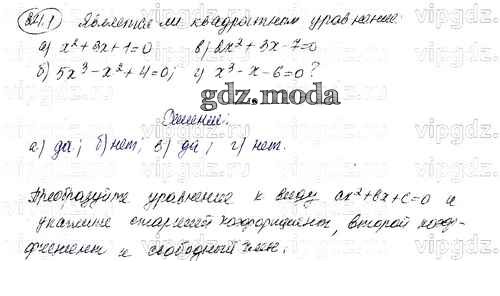 24.1 Является ли квадратным уравнение:
а) x²+3x+1=0 в) 2x²+3x-7=0
б) 5x³-x²+4=0; г) x³-x-6=0?
gdz.moda
Решение:
а) да; б) нет; в) да; г) нет.
Преобразуйте уравнение к виду ax²+bx+c=0 и
укажите старший коэффициент, второй коэф-
фициент и свободный член.